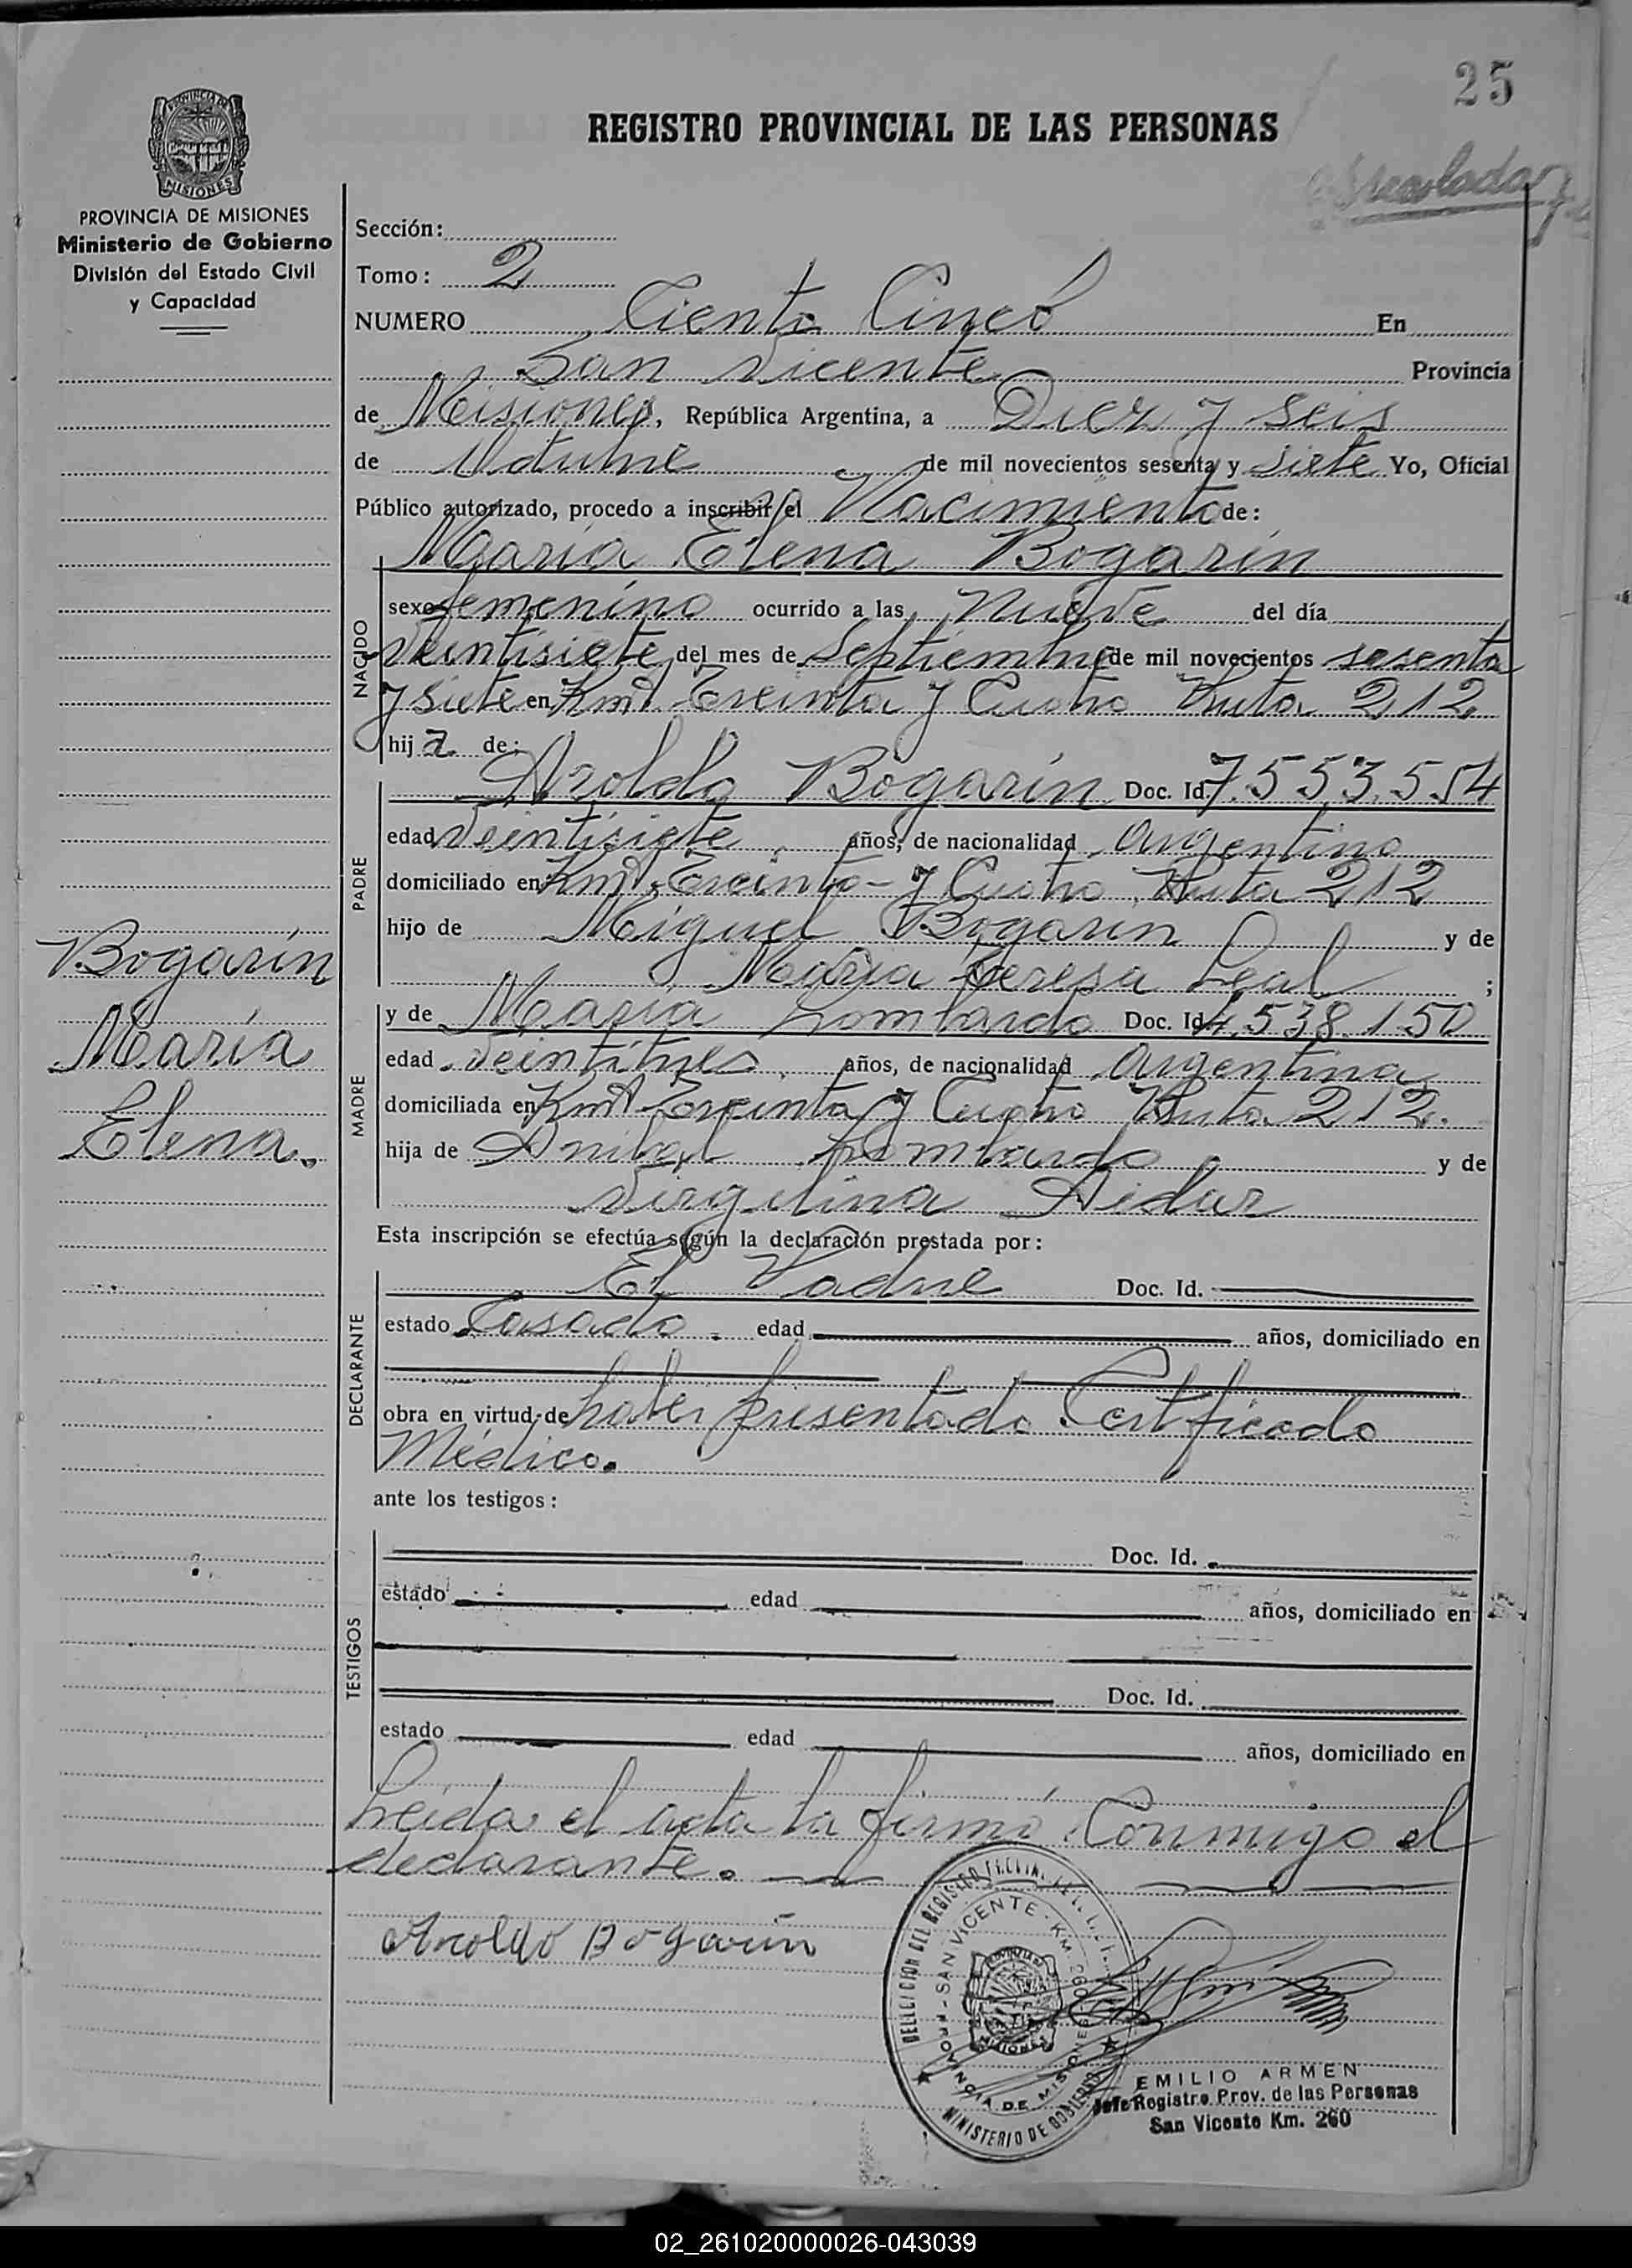 25
REGISTRO PROVINCIAL DE LAS PERSONAS
PROVINCIA DE
MISIONES
PROVINCIA DE MISIONES
Ministerio de Gobierno
División del Estado Civil
y Capacidad
Sección:
Tomo: 2
NUMERO Ciento Cinco En
San Vicente Provincia
de Misiones, República Argentina, a Diez y seis
de Octubre de mil novecientos sesenta y siete Yo, Oficial
Público autorizado, procedo a inscribir el Nacimiento de:
María Elena Bogarín
NACIDO
sexo femenino ocurrido a las Nueve del día
Veintisiete del mes de Septiembre de mil novecientos sesenta
y siete en Kmt. Treinta y Cuatro Ruta 212
hija de:
PADRE
Aroldo Bogarín Doc. Id. 7.553.554
edad Veintisiete años, de nacionalidad Argentino
domiciliado en Kmt. Treinta y Cuatro Ruta 212
hijo de Miguel Bogarin y de
María Teresa Leal ;
MADRE
y de María Lombardo Doc. Id. 4.538.150
edad Veintitres años, de nacionalidad Argentina
domiciliada en Kmt. Treinta y Cuatro Ruta 212.
hija de Anibal Lombardo y de
Virgilina Aidar
Bogarín
María
Elena.
Esta inscripción se efectúa según la declaración prestada por:
DECLARANTE
El Padre Doc. Id.
estado Casado edad años, domiciliado en
obra en virtud de haber presentado Certificado
Médico.
ante los testigos:
TESTIGOS
Doc. Id.
estado edad años, domiciliado en
Doc. Id.
estado edad años, domiciliado en
Leida el acta la firmó Conmigo el
declarante.
Aroldo Bogarin
SAN VICENTE - KM 260
PROVINCIA DE MISIONES
MINISTERIO DE GOBIERNO
EMILIO ARMEN
Jefe Registro Prov. de las Personas
San Vicente Km. 260
02_261020000026-043039